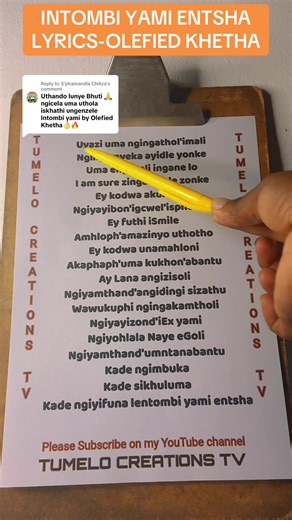 INTOMBI YAMI ENTSHA
LYRICS-OLEFIED KHETHA
Reply to S'phamandla Chiliza's
comment
Uthando lunye Bhuti 🙏
ngicela uma uthola
iskhathi ungenzele
Intombi yami by Olefied
Khetha👌🔥
TUMELO CREATIONS TV
Uyazi uma ngingathol'imali
ayidle yonke
ingane lo
I am sure zonke
Ey kodwa
Ngiyayibon'igcwel'
Ey futhi iSmile
Amhloph'amazinyo uthotho
Ey kodwa unamahloni
Akaphaph'uma kukhon'abantu
Ay Lana angizisoli
Ngiyamthand'angidingi sizathu
Wawukuphi ngingakamtholi
Ngiyayizond'iEx yami
Ngiyohlala Naye eGoli
Ngiyamthand'umntanabantu
Kade ngimbuka
Kade sikhuluma
Kade ngiyifuna lentombi yami entsha
TUMELO CREATIONS TV
Please Subscribe on my YouTube channel
TUMELO CREATIONS TV